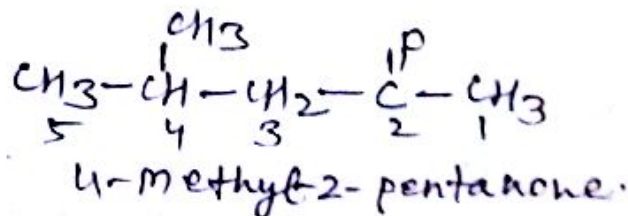 CH3
CH3-CH-CH2-C-CH3
5 4 3 2 1
4-methyl-2-pentanone.